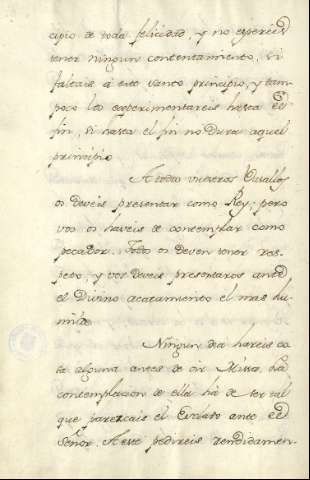 cipio de toda felicidad, y no espereis
tener ningun contentamiento, si
faltais à este santo principio, y tam-
poco lo experimentareis hasta el
fin, si hasta el fin no dura aquel
principio
A todos vuestros Vasallos
os deveis presentar como Rey, pero
vos os haveis de contemplar como
pecador. Todos os deven tener res-
peto, y vos deveis presentaros ante
el Divino acatamiento el mas hu-
milde.
Ningun dia hareis co-
sa alguna antes de oir Missa, La
contemplacion de ella há de ser tal
que parezcais el Esclavo ante el
Señor. A este pedireis rendidamen-